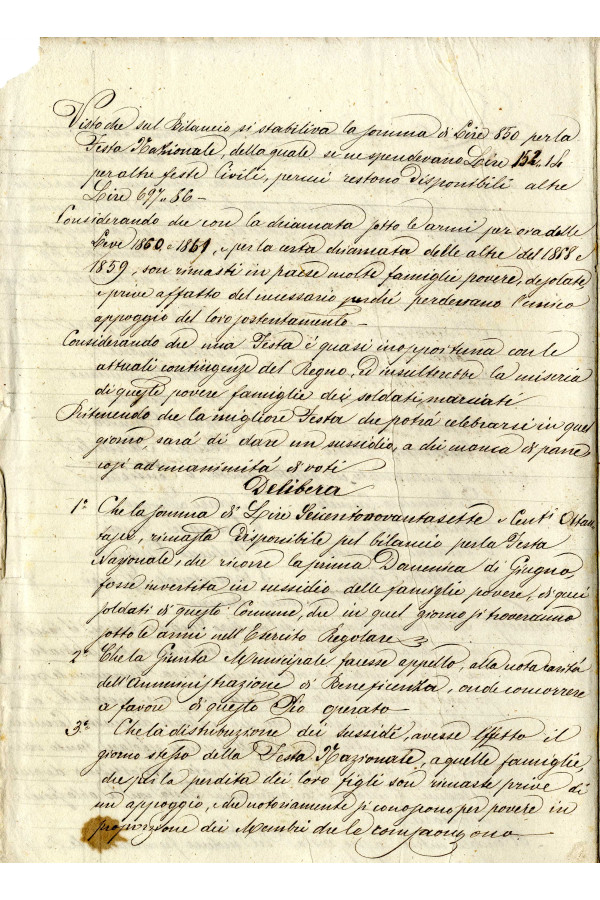 Visto che sul Bilancio si stabiliva la somma di Lire 850 per la
Festa Nazionale, della quale se ne spendevano Lire 152.14
per altre feste Civili, perciò restono disponibili altre
Lire 697.86 -
Considerando che con la chiamata sotto le armi per ora delle
Leve 1860 e 1861, e per la certa chiamata delle altre del 1858 e
1859, son rimasti in paese molte famiglie povere, desolate
e prive affatto del necessario perché perdevano l'unico
appoggio del loro sostentamento -
Considerando che una Festa è quasi inopportuna con le
attuali contingenze del Regno, ed insulterebbe la miseria
di queste povere famiglie dei soldati marciati
Ritenendo che la migliore Festa che potrà celebrarsi in quel
giorno, sarà di dare un sussidio, a chi manca di pane
così ad unanimità di voti
Delibera
1° Che la somma di Lire Seicentonovantasette e Centi Ottan
tasei, rimasta disponibile sul bilancio per la Festa
Nazionale, che ricorre la prima Domenica di Giugno,
fosse invertita in sussidio delle famiglie povere, di quei
soldati di questo Comune, che in quel giorno si troveranno
sotto le armi nell'Esercito Regolare
2° Che la Giunta Municipale facesse appello, alla nota carità
dell'Amministrazione di Beneficenza, onde concorrere
a favore di questo Pio operato -
3° Che la distribuzione dei sussidi, avesse effetto il
giorno stesso della Festa Nazionale, a quelle famiglie,
che per la perdita dei loro figli son rimaste prive di
un appoggio, e che notoriamente si conoscono per povere in
proporzione dei Membri che le compongono -